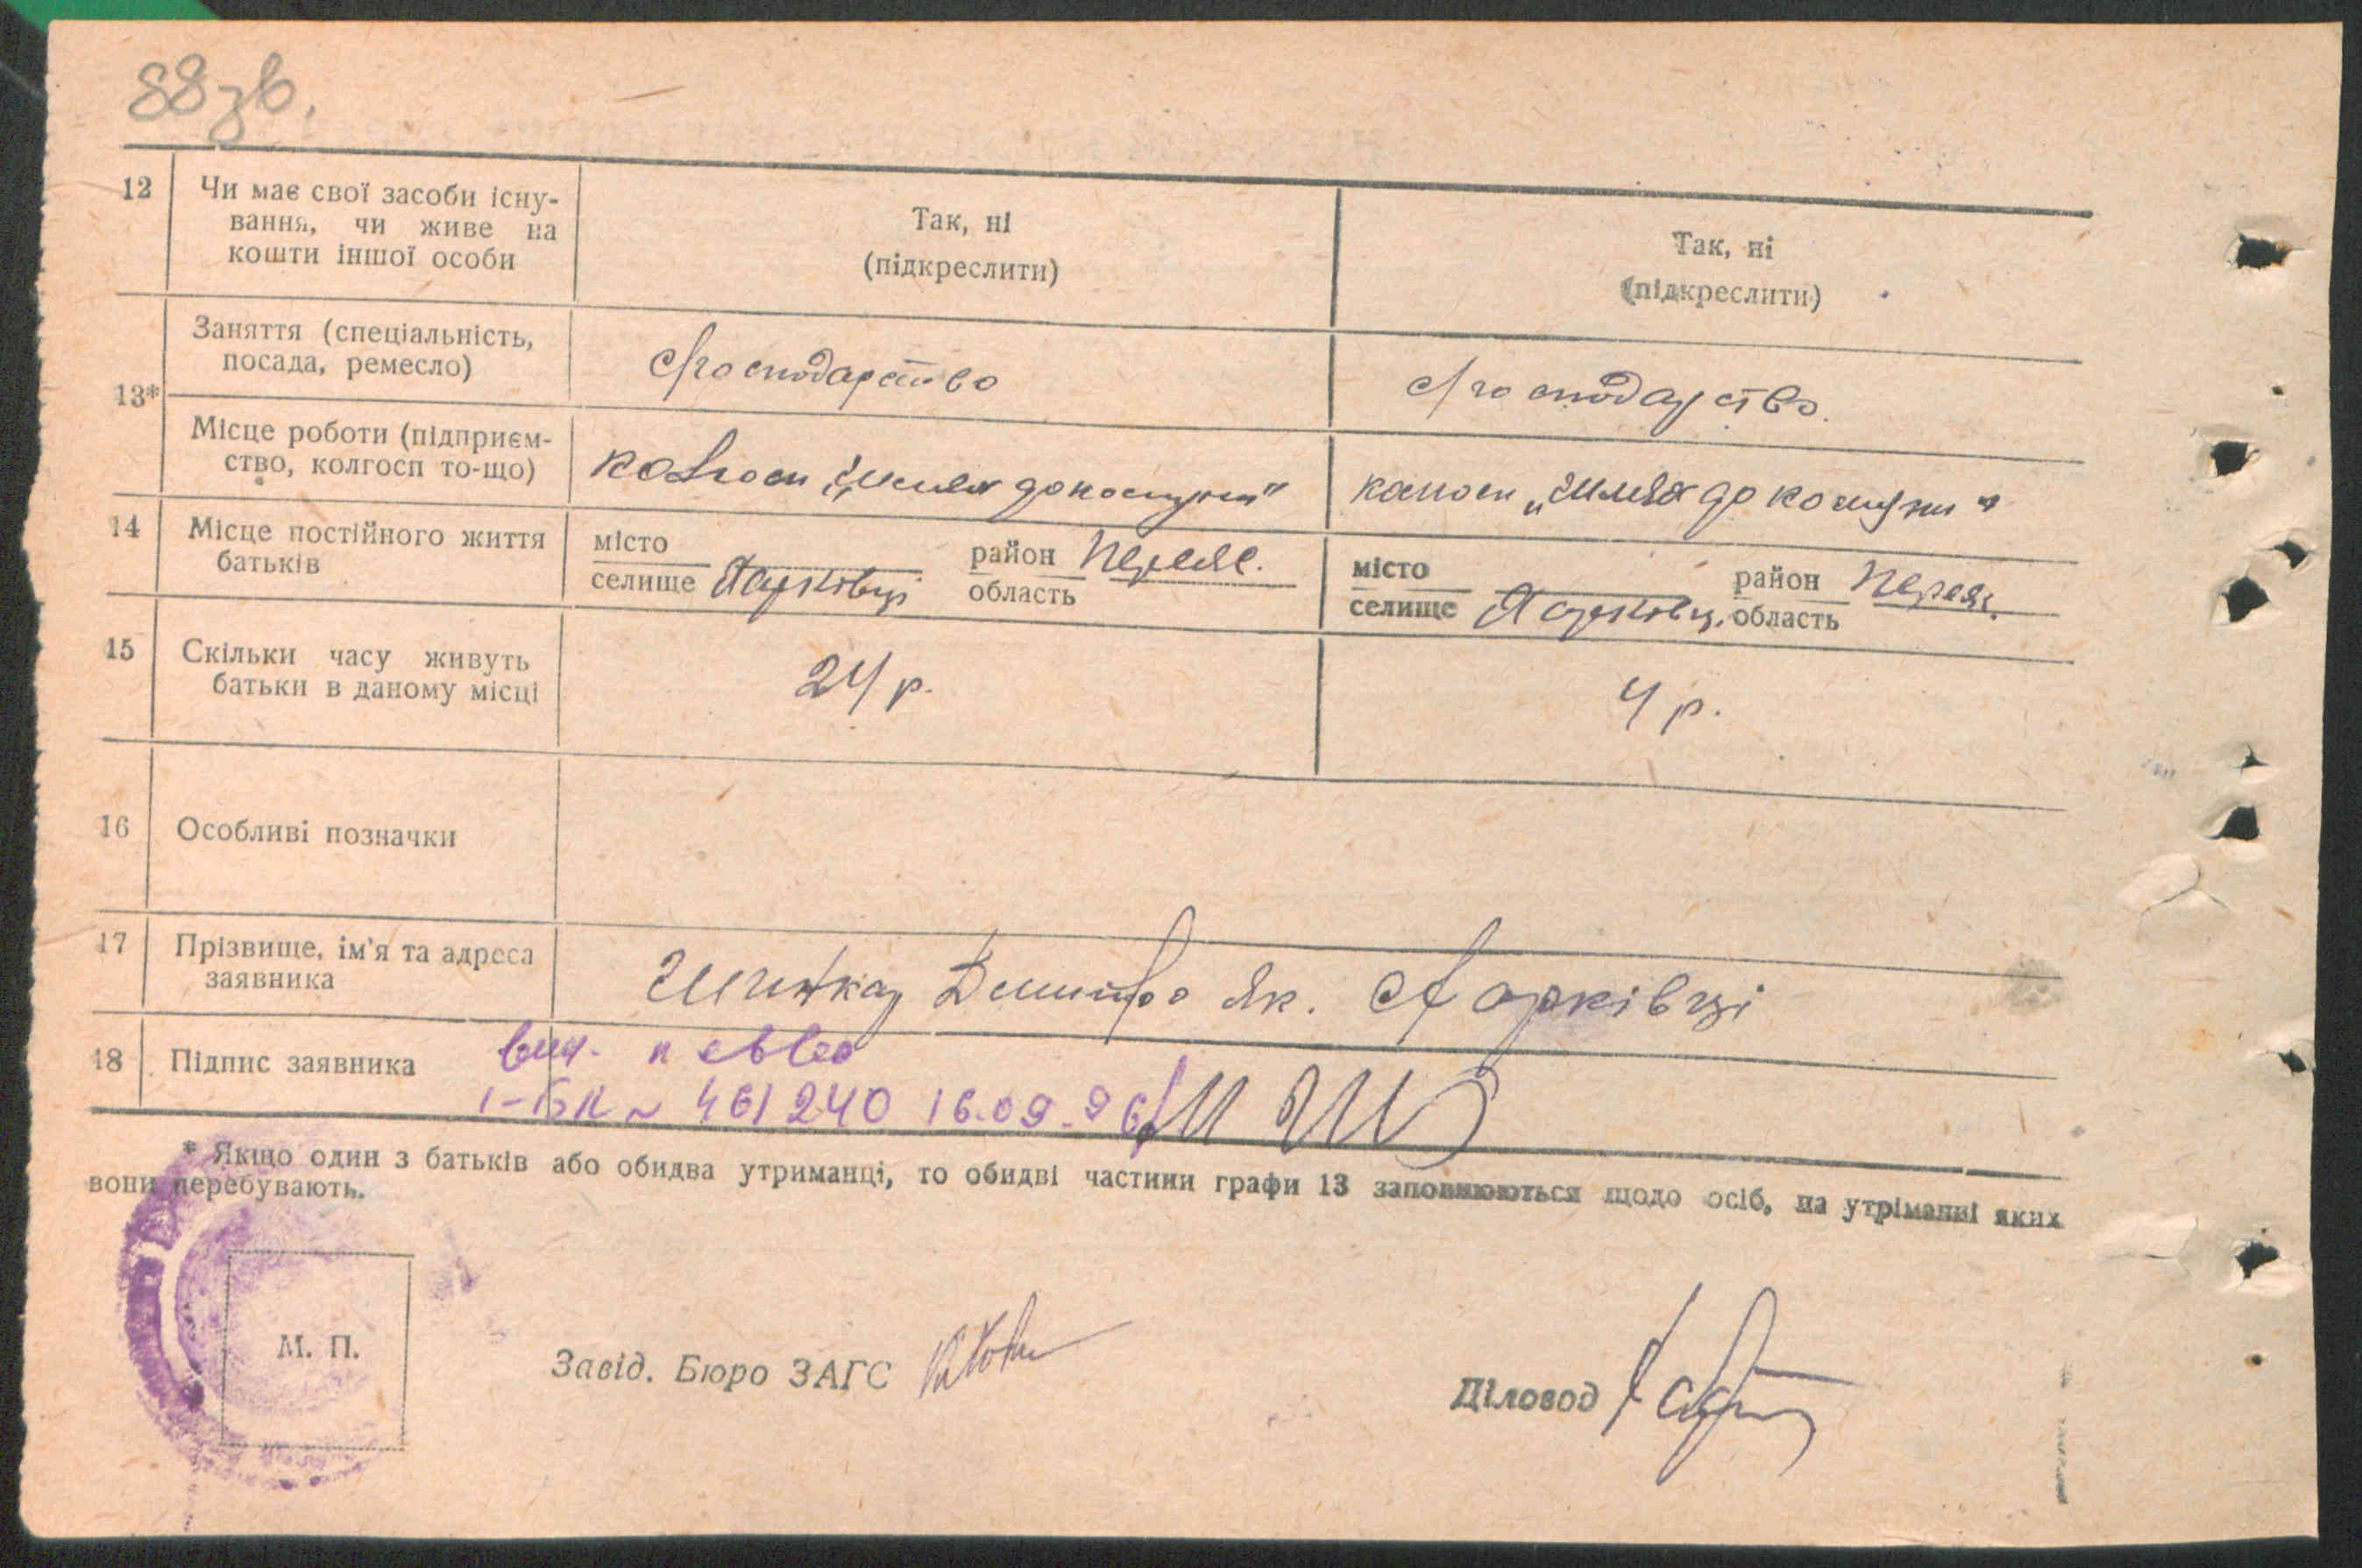 88 зв.
12 Чи має свої засоби існу-
вання, чи живе на
кошти іншої особи
Так, ні
(підкреслити)
Так, ні
(підкреслити)
13*
Заняття (спеціальність,
посада, ремесло)
с/господарство
с/господарство.
Місце роботи (підприєм-
ство, колгосп то-що)
колгосп „Шлях до комуни"
колгосп „Шлях до комуни"
14 Місце постійного життя
батьків
місто
селище Харківці
район Переяс.
область
місто
селище Харківці
район Переяс.
область
15 Скільки часу живуть
батьки в даному місці
24 р.
4 р.
16 Особливі позначки
17 Прізвище, ім'я та адреса
заявника
Дмитро Як. Харківці
18 Підпис заявника
вид. п св во
I-БК № 461240 16.09.96
* Якщо один з батьків або обидва утриманці, то обидві частини графи 13 заповнюються щодо осіб, на утріманні яких
вони перебувають.
М. П.
Завід. Бюро ЗАГС
Діловод